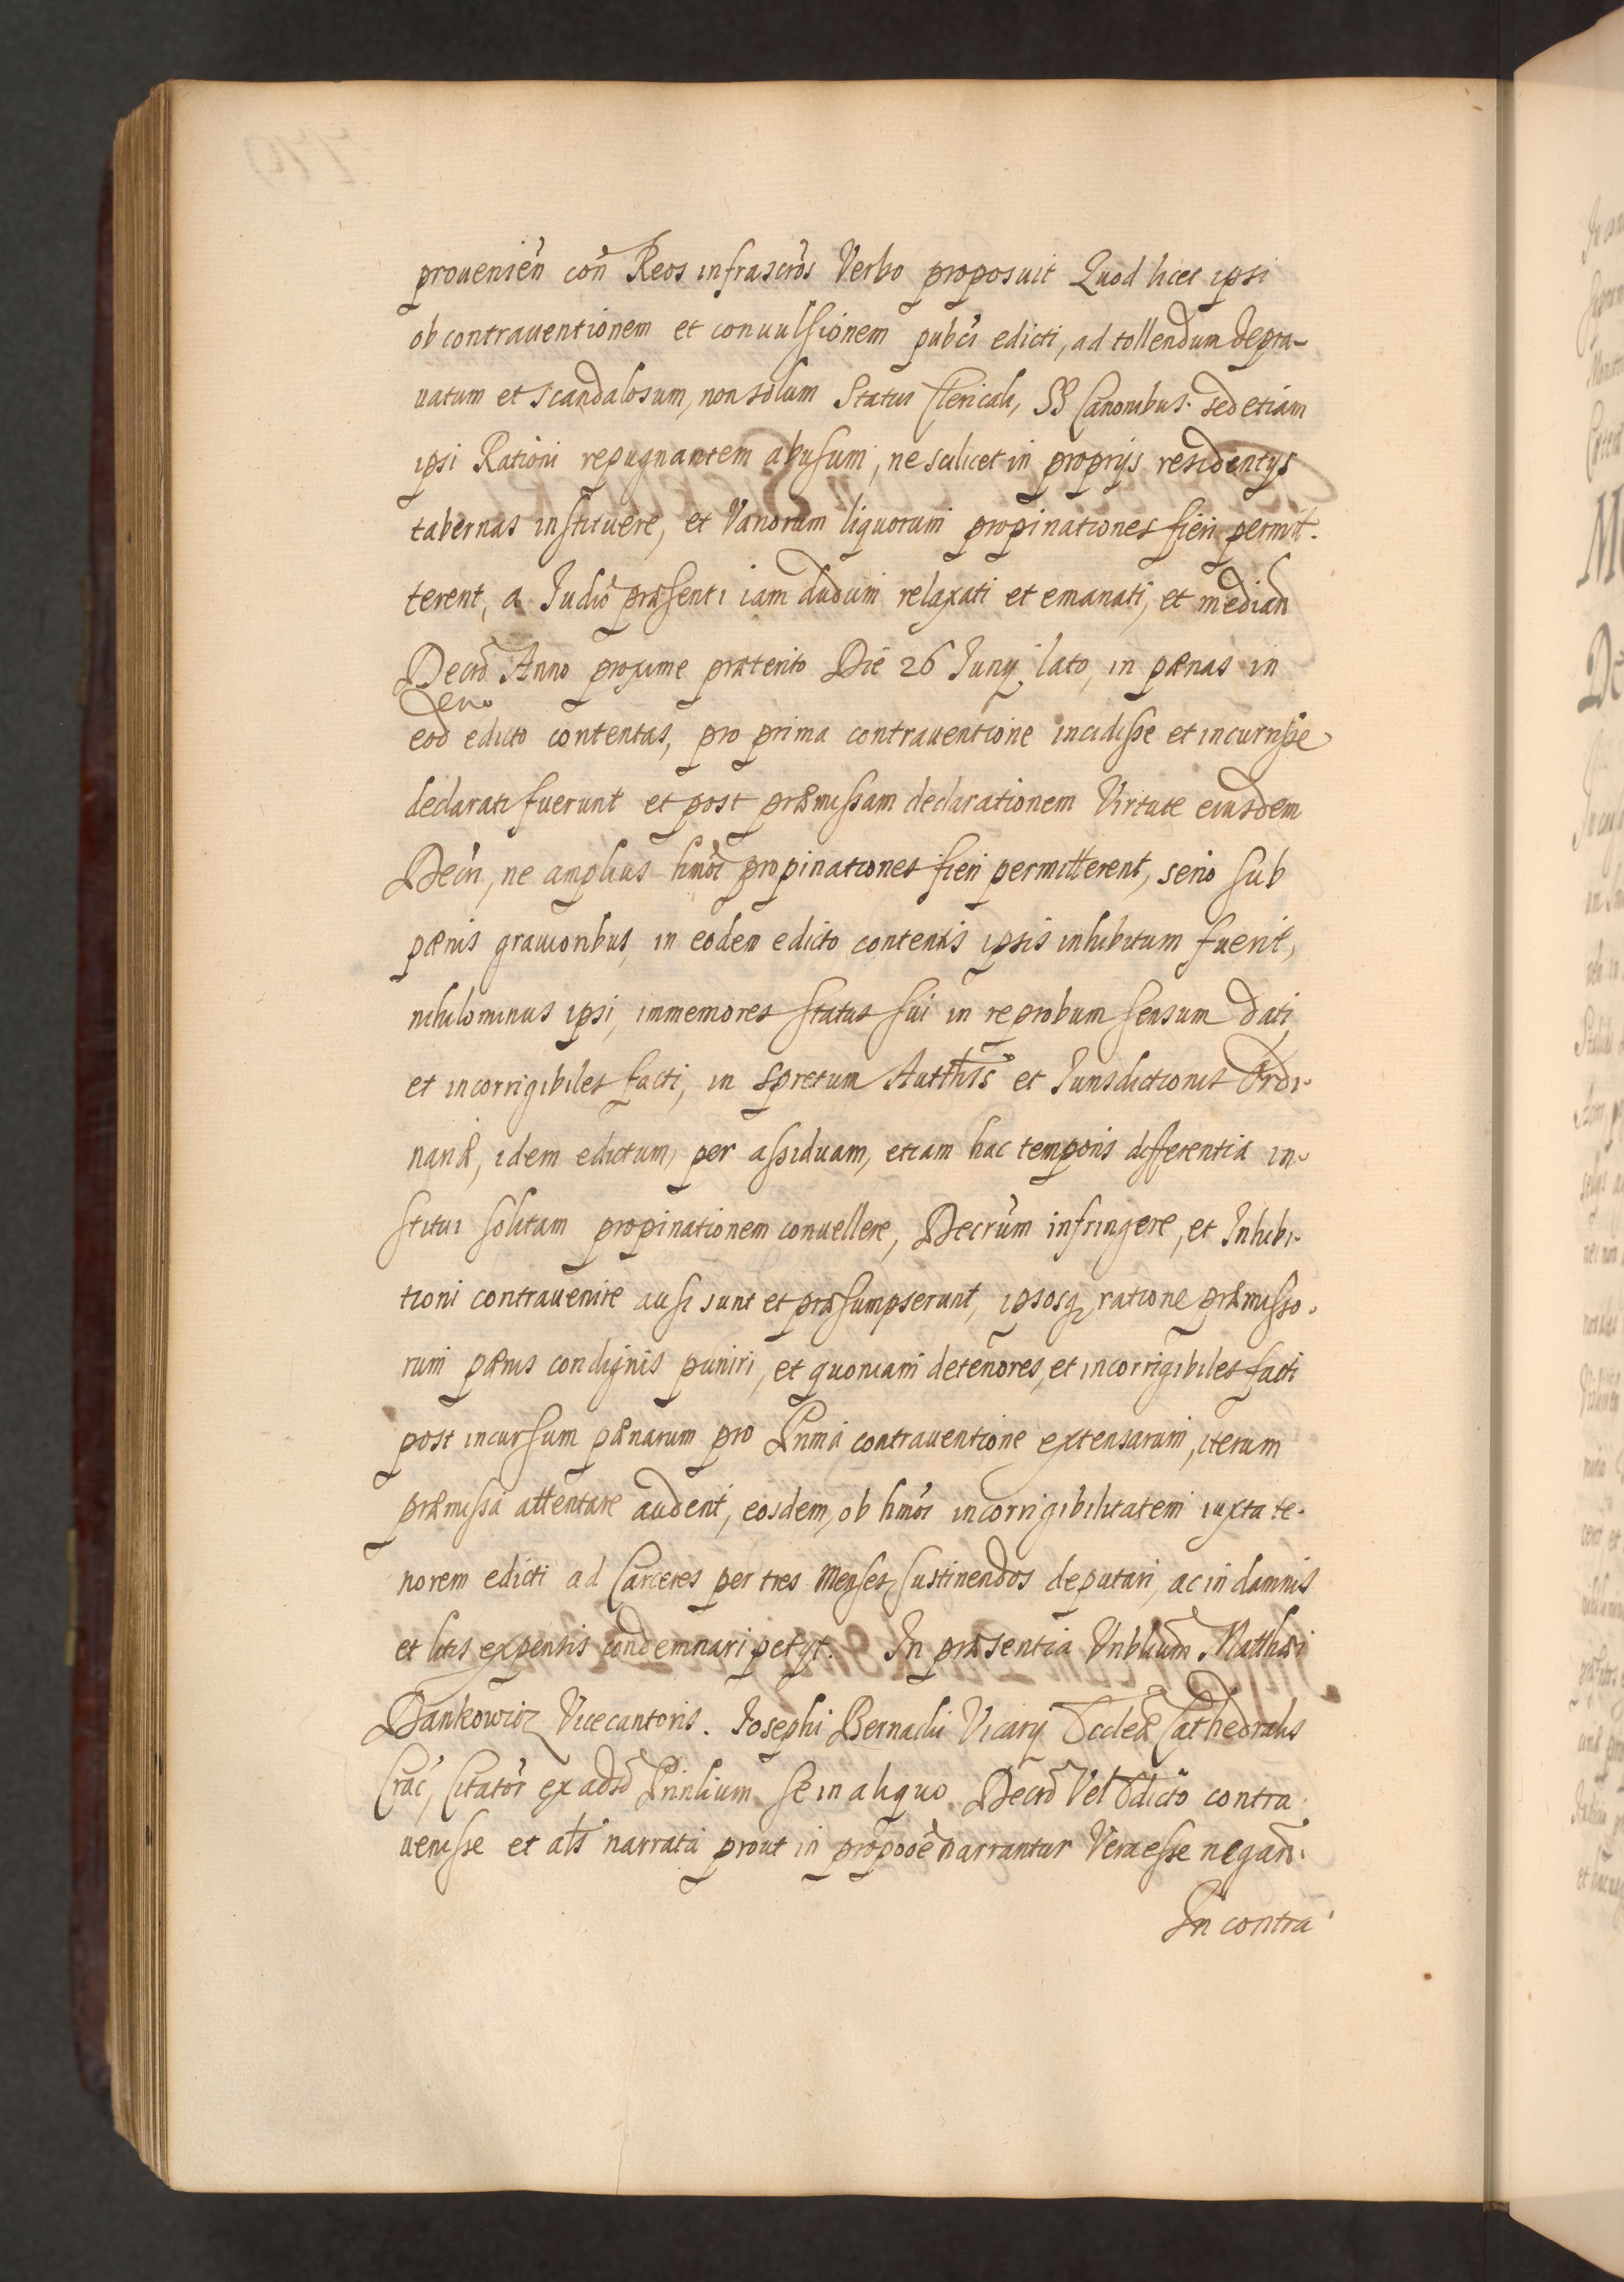 prouenień coń Reos infrascrós Verbo proposuit Quod licet ipsi
ob contrauentionem et conuulsionem pubcí edicti, ad tollendum depra-
uatum et scandalosum, non solum Statui Clericali, SS Canonibus sed etiam
ipsi Rationi repugnantem abusum, ne scilicet in proprijs residentijs
tabernas instituere, et Variorum liquorum propinationes fieri permit-
terent, a Judió præsenti iam dudum relaxati et emanati, et median
Decró Anno proxime præterito Die 26 Junij lato, in pænas in
eod edicto contentas, pro prima contrauentione incidisse et incurrisse
declarati fuerunt et post præmissam declarationem Virtute eiusdem
Decrí, ne amplius hmoí propinationes fieri permitterent, serio sub
pænis grauioribus, in eodem edicto contentis ipsis inhibitum fuerit,
nihilominus ipsi, immemores status sui in reprobum sensum dati,
et incorrigibiles facti, in spretum Autthtis et Jurisdictionis Ordi-
nariæ, idem edictum, per assiduam, etiam hac temporis differentia in-
stitui solitam propinationem conuellere, Decrúm infringere, et Inhibi-
tioni contrauenire ausi sunt et præsumpserunt, ipsosq ratione præmisso-
rum pænis condignis puniri, et quoniam deteriores, et incorrigibiles facti
post incursum pænarum pro Prima contrauentione extensarum, iterum
præmissa attentare audent, eosdem, ob hmoí incorrigibilitatem iuxta te-
norem edicti ad Carceres per tres Menses sustinendos deputari, ac in damnis
et litis expensis condemnari petijt. In præsentia Vnblium Matthæi
Dankowicz Vicecantoris. Josephi Bernadii Vicarij Eccleæ Cathedralis
Crać, Citator ex adso Prinlium se in aliquo Decró Vel Edicto contra
uenisse et als narrata prout in proposoe narrantur Vera esse negań.
In contra